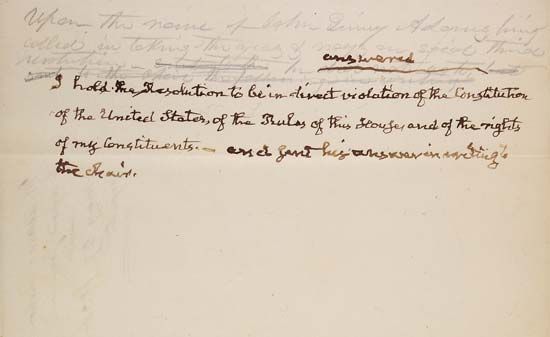 Upon the name of John Quincy Adams being
called in taking the yeas & nays on said third
resolution
answered
I hold the Resolution to be in direct violation of the Constitution
of the United States, of the Rules of this House, and of the rights
of my Constituents. — and sent his answer in writing to
the chair.